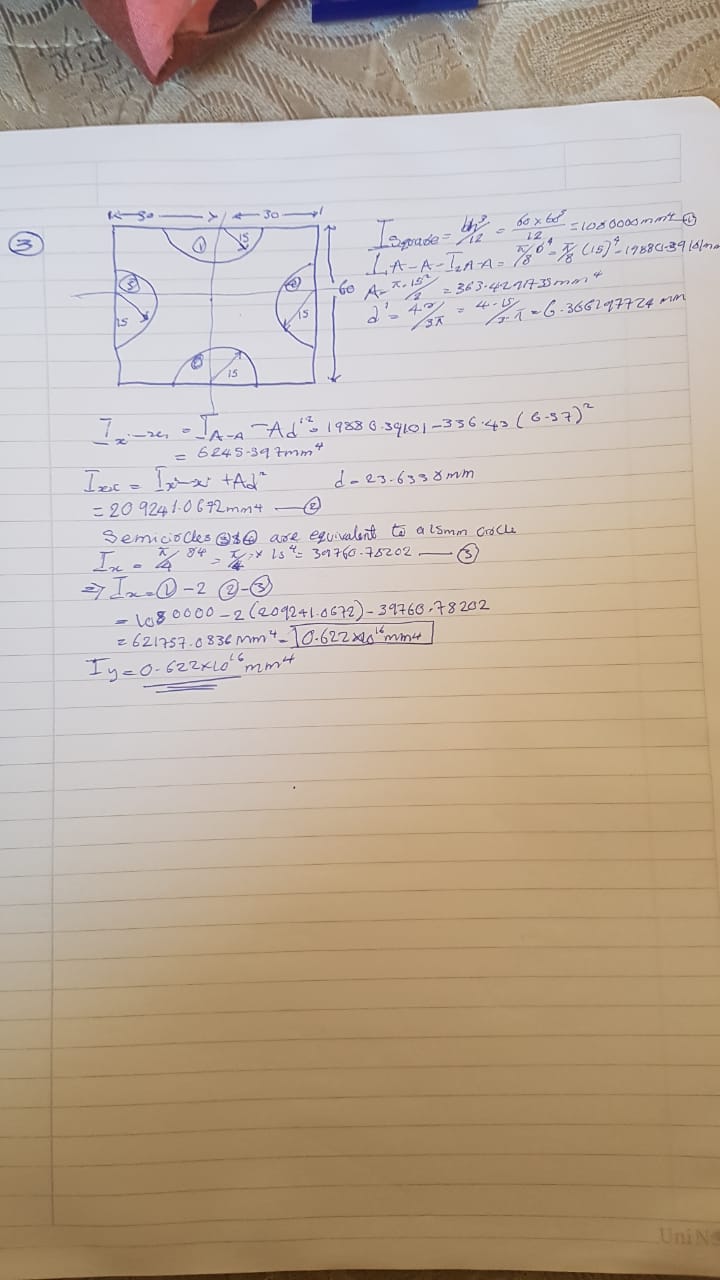 ③
30 30
① 15
③ 15
④ 15
② 15
60
I square = bh³/12 = 60 x 60³/12 = 1080000mm4 ①
I A-A = I₂A-A = π/8 r⁴ = π/8 (15)⁴ = 19880.39101mm
A = π.15²/2 = 363.4291735mm⁴
d' = 4r/3π = 4.15/3.π = 6.366197724 mm
I x'-x' = I A-A - Ad'² = 19880.39101 - 356.43 (6.37)²
= 6245.397mm⁴
Ixx = Ix'-x' + Ad² d = 23.6338mm
= 209241.0672mm4 — ②
Semicircles ③ & ④ are equivalent to a 15mm circle
Ix = π/4 r4 = π/4 x 15⁴ = 39760.78202 — ③
⇒ Ix = ① - 2 ② - ③
= 1080000 - 2(209241.0672) - 39760.78202
= 621757.0836mm⁴ = 0.622x10¹⁶mm4
Iy = 0.622x10¹⁶mm4
Uni N